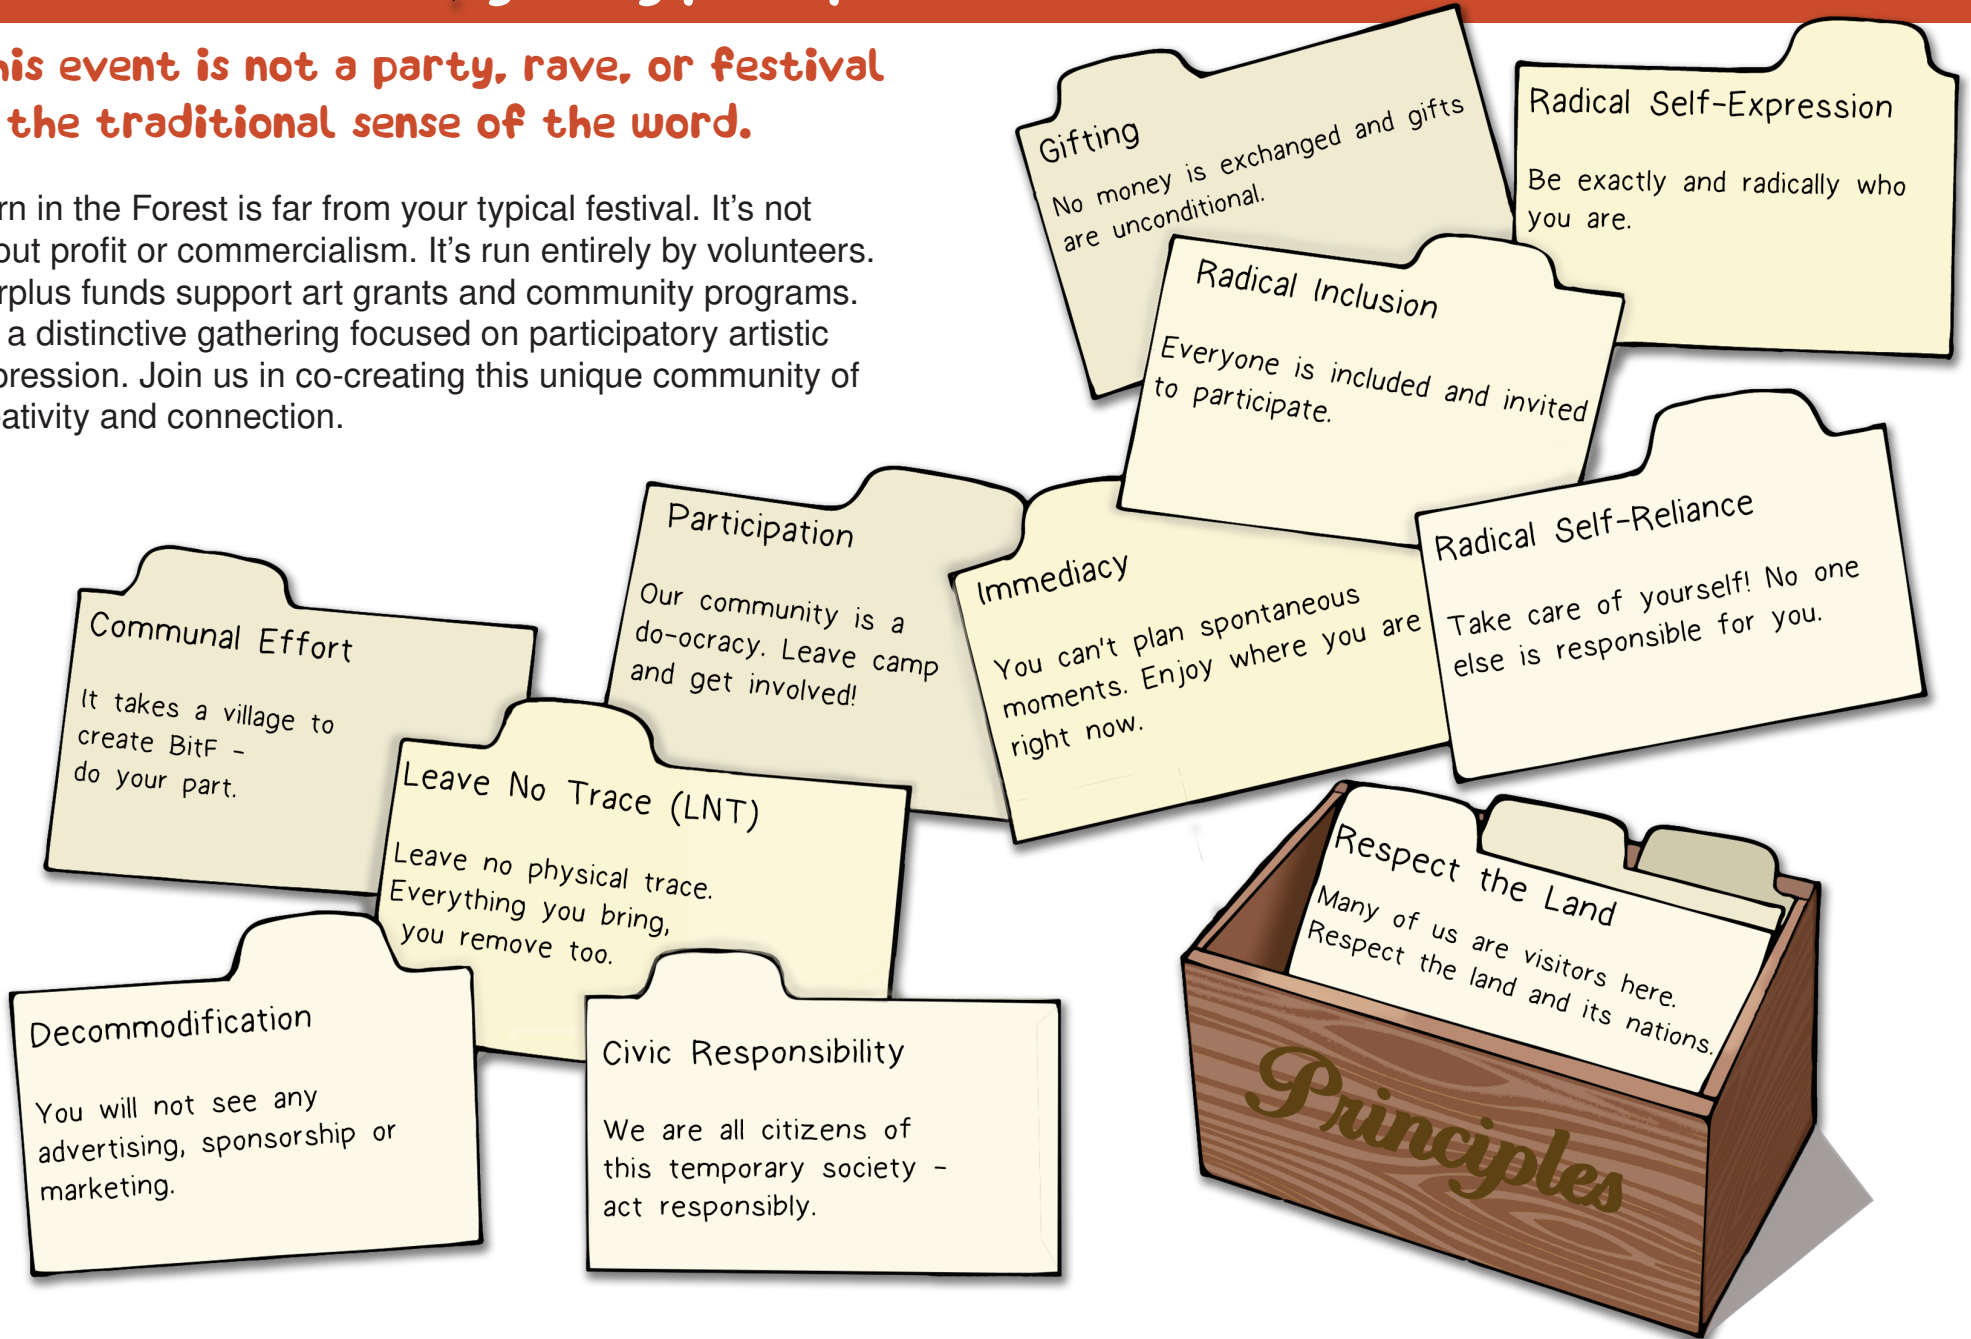 his event is not a party, rave, or festival
the traditional sense of the word.
rn in the Forest is far from your typical festival. It's not
out profit or commercialism. It's run entirely by volunteers.
rplus funds support art grants and community programs.
a distinctive gathering focused on participatory artistic
pression. Join us in co-creating this unique community of
eativity and connection.
Gifting
No money is exchanged and gifts
are unconditional.
Radical Self-Expression
Be exactly and radically who
you are.
Radical Inclusion
Everyone is included and invited
to participate.
Participation
Our community is a
do-ocracy. Leave camp
and get involved!
Immediacy
You can't plan spontaneous
moments. Enjoy where you are
right now.
Radical Self-Reliance
Take care of yourself! No one
else is responsible for you.
Communal Effort
It takes a village to
create BitF -
do your part.
Leave No Trace (LNT)
Leave no physical trace.
Everything you bring,
you remove too.
Respect the Land
Many of us are visitors here.
Respect the land and its nations.
Decommodification
You will not see any
advertising, sponsorship or
marketing.
Civic Responsibility
We are all citizens of
this temporary society -
act responsibly.
Principles